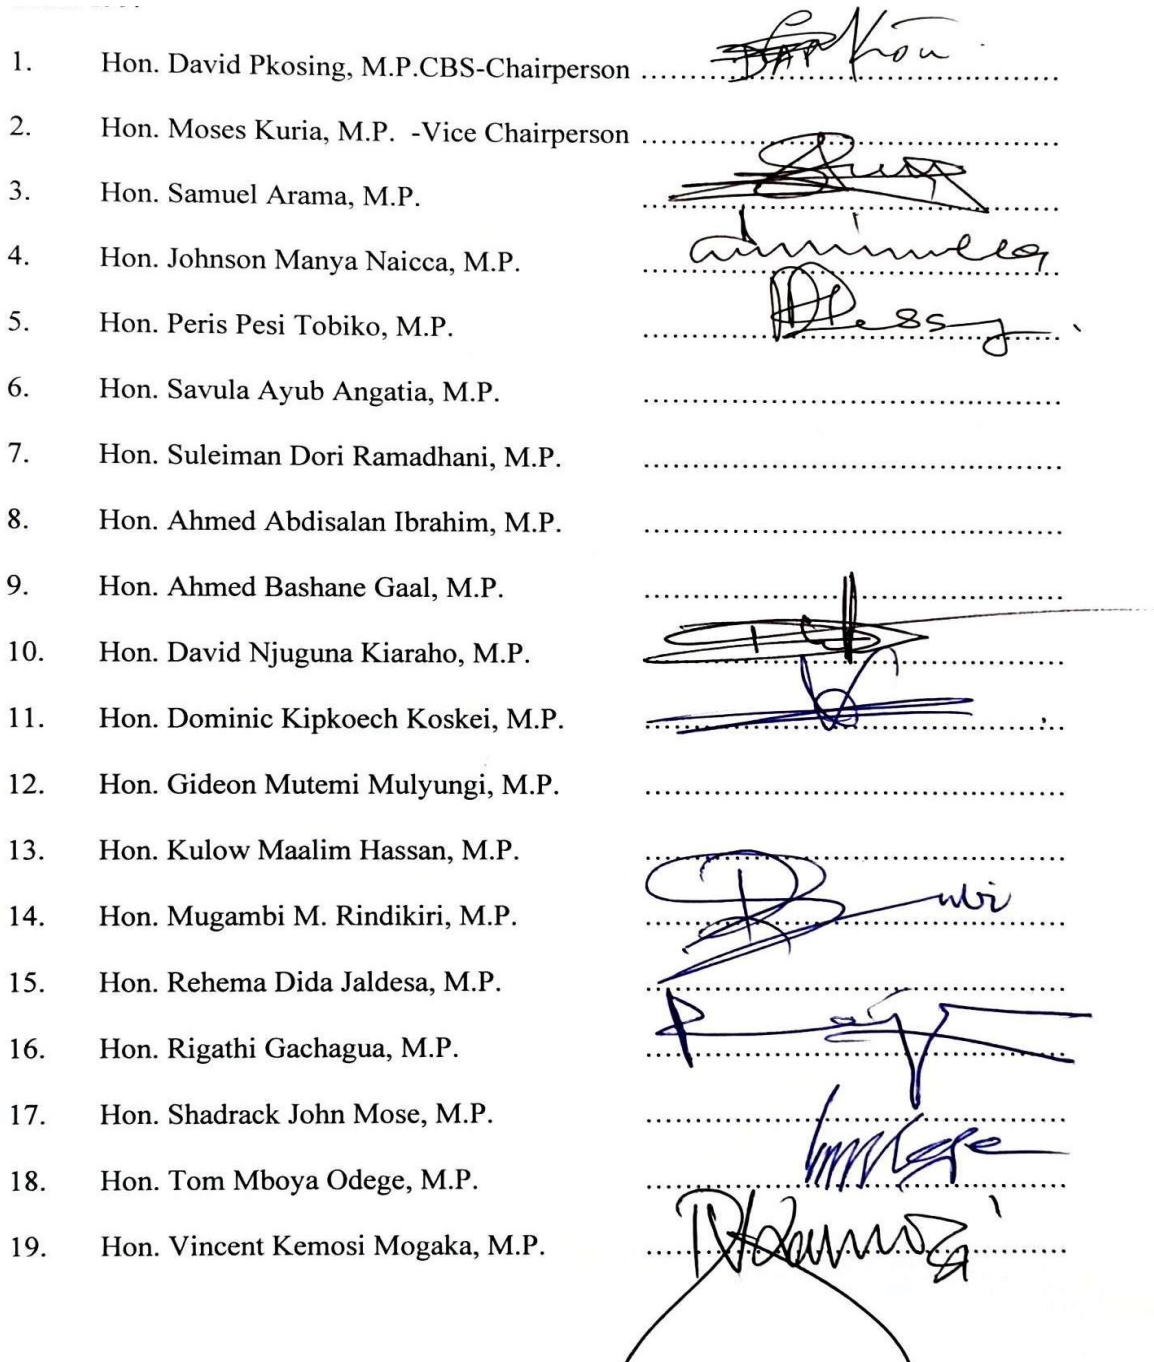 1. Hon. David Pkosing, M.P.CBS-Chairperson ....................................................
2. Hon. Moses Kuria, M.P. -Vice Chairperson ....................................................
3. Hon. Samuel Arama, M.P. ....................................................
4. Hon. Johnson Manya Naicca, M.P. ....................................................
5. Hon. Peris Pesi Tobiko, M.P. ....................................................
6. Hon. Savula Ayub Angatia, M.P. ....................................................
7. Hon. Suleiman Dori Ramadhani, M.P. ....................................................
8. Hon. Ahmed Abdisalan Ibrahim, M.P. ....................................................
9. Hon. Ahmed Bashane Gaal, M.P. ....................................................
10. Hon. David Njuguna Kiaraho, M.P. ....................................................
11. Hon. Dominic Kipkoech Koskei, M.P. ....................................................
12. Hon. Gideon Mutemi Mulyungi, M.P. ....................................................
13. Hon. Kulow Maalim Hassan, M.P. ....................................................
14. Hon. Mugambi M. Rindikiri, M.P. ....................................................
15. Hon. Rehema Dida Jaldesa, M.P. ....................................................
16. Hon. Rigathi Gachagua, M.P. ....................................................
17. Hon. Shadrack John Mose, M.P. ....................................................
18. Hon. Tom Mboya Odege, M.P. ....................................................
19. Hon. Vincent Kemosi Mogaka, M.P. ....................................................